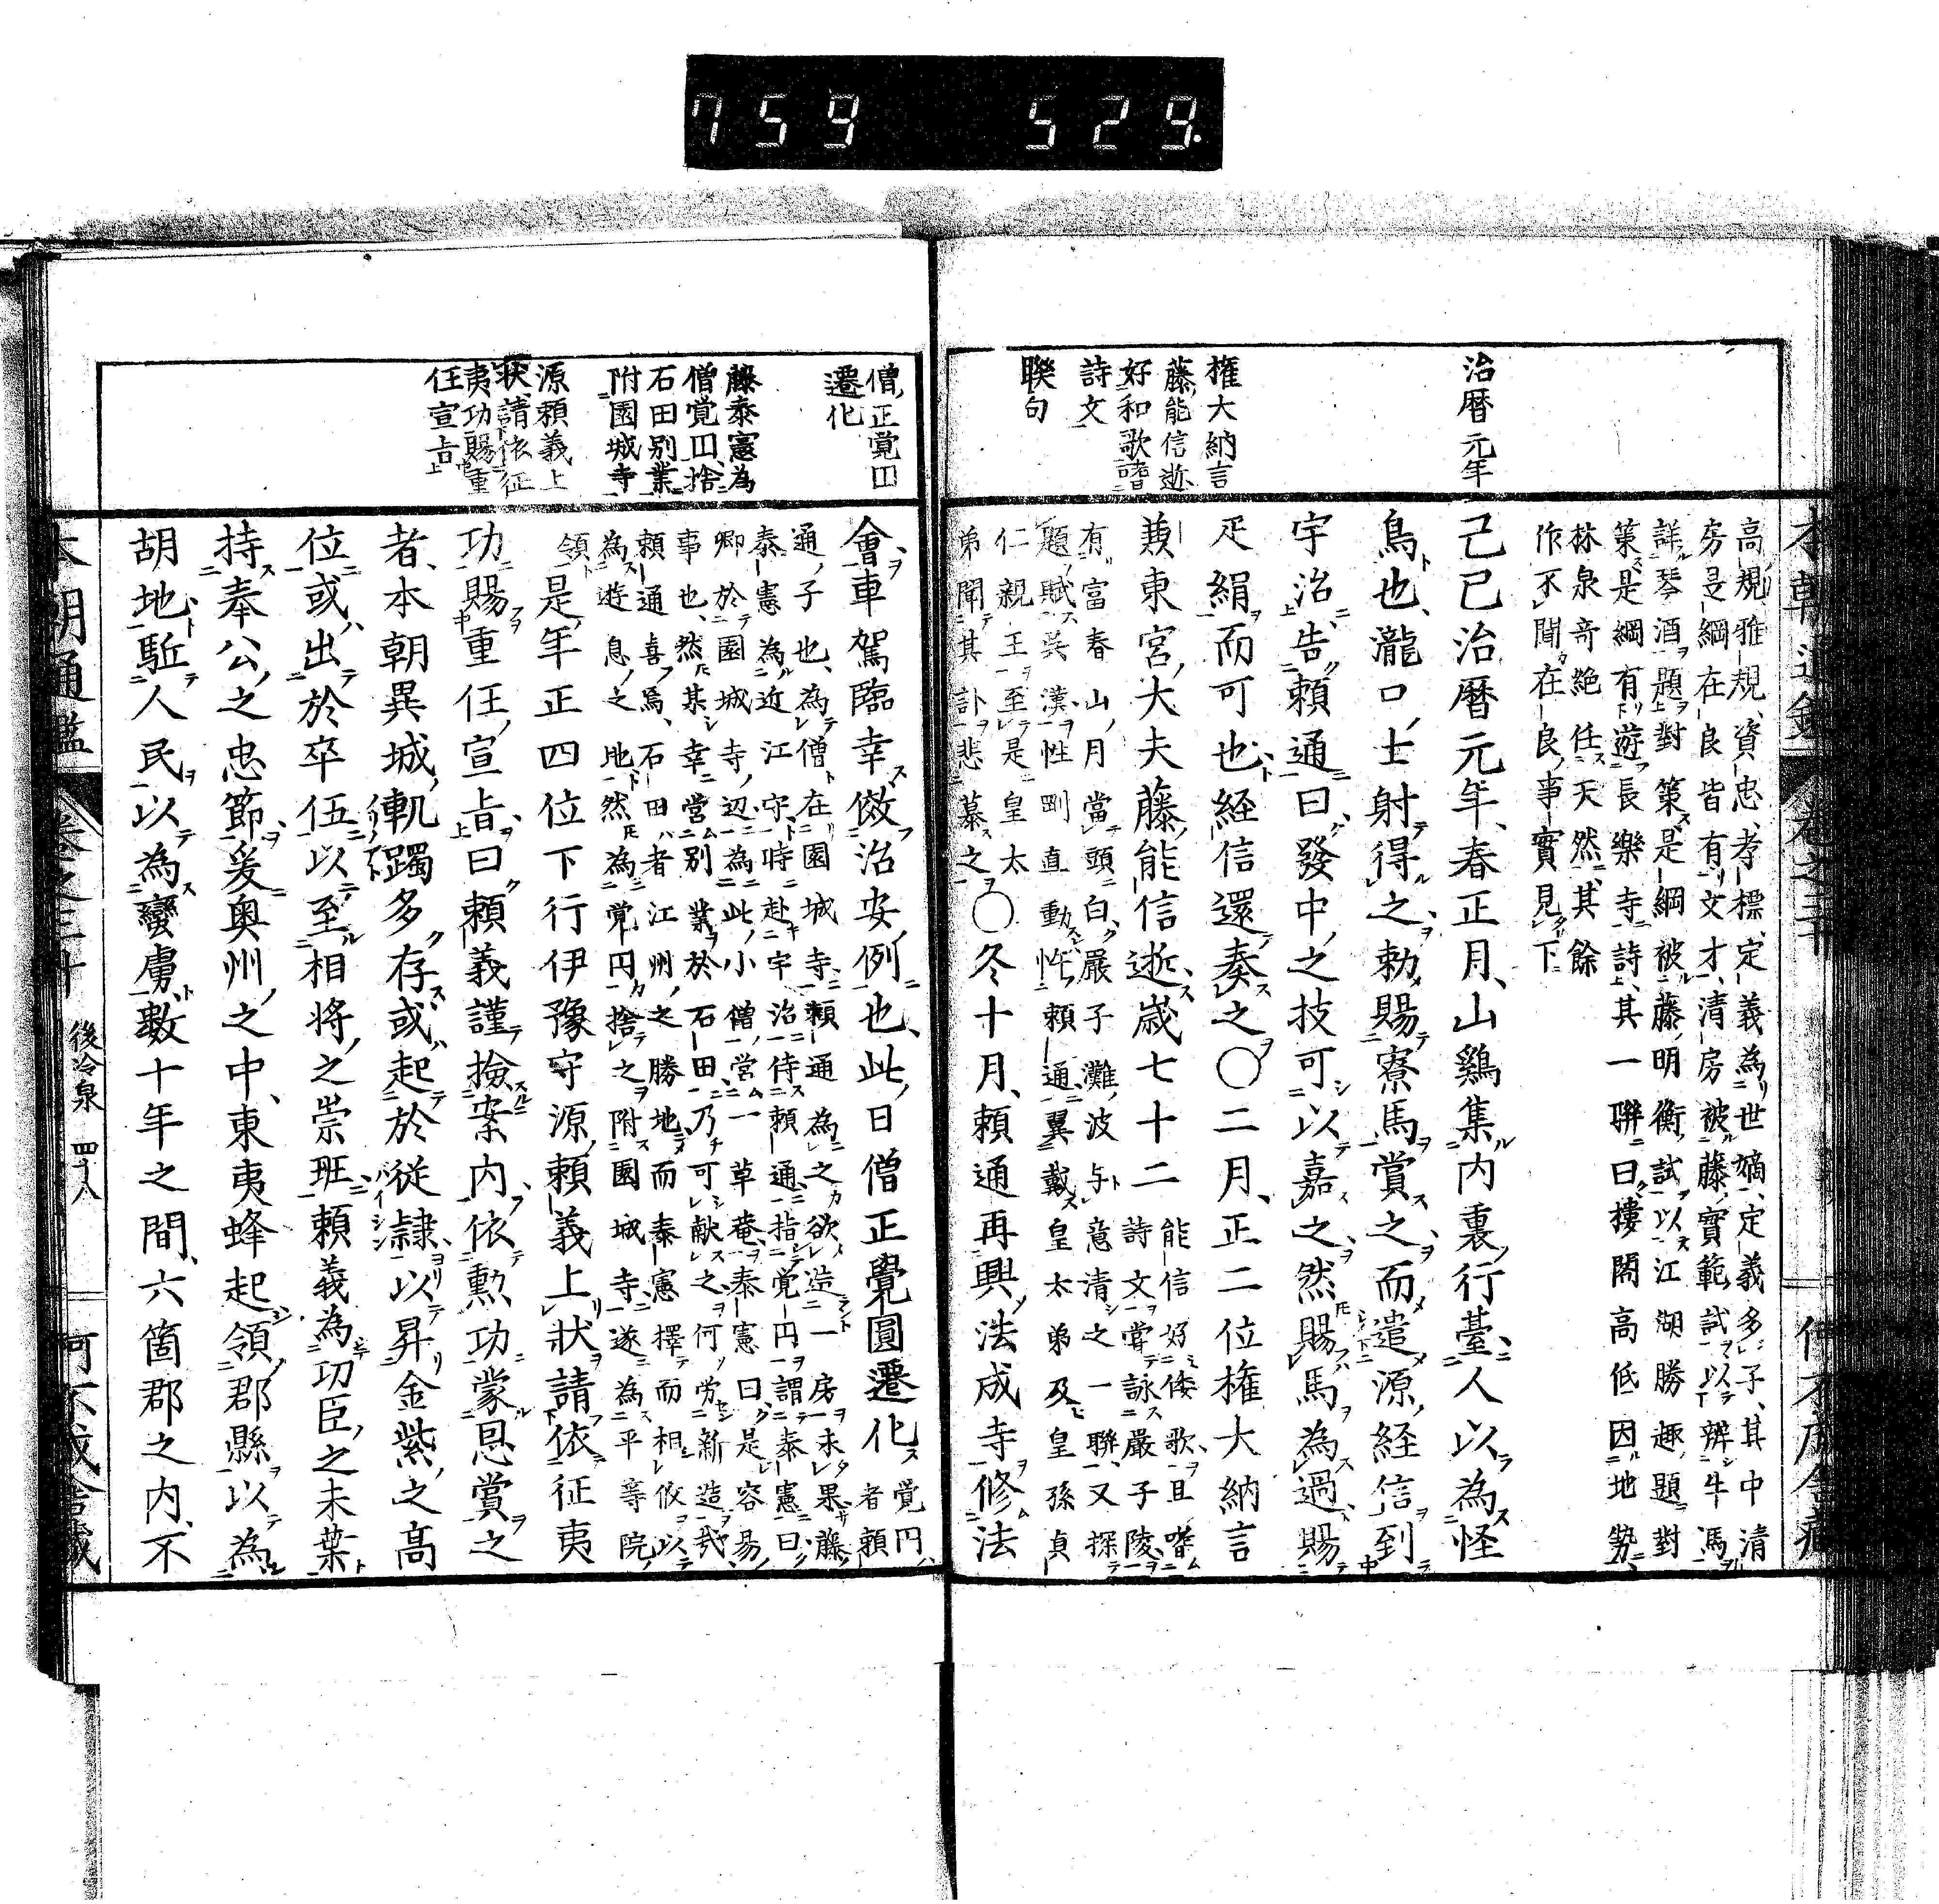 759 529.
治暦元年
権大納言
藤能信逝
好和歌嗜
詩文
聯句
高規雅規資忠孝標定義為世嫡定義多子其中清
房是綱在良皆有文才清房被藤實範試以辨牛馬
詳琴酒題對策是綱被藤明衡試以江湖勝趣題對
策是綱有遊長樂寺詩其一聯曰樓閣高低因地勢
林泉奇絶任天然其餘
作不聞在良事實見下
己巳治暦元年春正月山鷄集内裏行臺人以為怪
鳥也瀧口士射得之勅賜寮馬賞之而遣源経信到
宇治告頼通曰發中之技可以嘉之然賜馬為過賜
疋絹而可也経信還奏之〇二月正二位権大納言
兼東宮大夫藤能信逝歳七十二
能信好倭歌且嗜
詩文嘗詠嚴子陵
有富春山月當頭白嚴子灘波与意清之一聯又探
題賦英漢性剛直動忤頼通翼戴皇太弟及皇孫貞
仁親王至是皇太
弟聞其訃悲慕之
〇冬十月頼通再興法成寺修法
會車駕臨幸傚治安例也此日僧正覺圓遷化
覚円
者頼
通子也為僧在園城寺頼通為之欲造一房未果藤
泰憲為近江守時赴宇治侍頼通指覚円謂泰憲曰
卿於園城寺辺為此小僧営一草菴泰憲曰是容易
事也然某幸営別業於石田乃可献之何労新造哉
頼通喜焉石田者江州之勝地而泰憲擇而相攸以
為遊息之地然為覚円捨之附園城寺遂為平等院
領
是年正四位下行伊豫守源頼義上状請依征夷
功賜重任宣旨曰頼義謹撿案内依勲功蒙恩賞之
者本朝異城軌躅多存或起於従隷以昇金紫之高
位或出於卒伍以至相将之崇班頼義為功臣之末葉
持奉公之忠節爰奥州之中東夷蜂起領郡縣以為
胡地駈人民以為蠻虜數十年之間六箇郡之内不
僧正覚円
遷化
藤泰憲為
僧覚円捨
石田別業
附園城寺
源頼義上
状請依征
夷功賜重
任宣旨
本朝通鑑
卷之三十
後冷泉 四十八